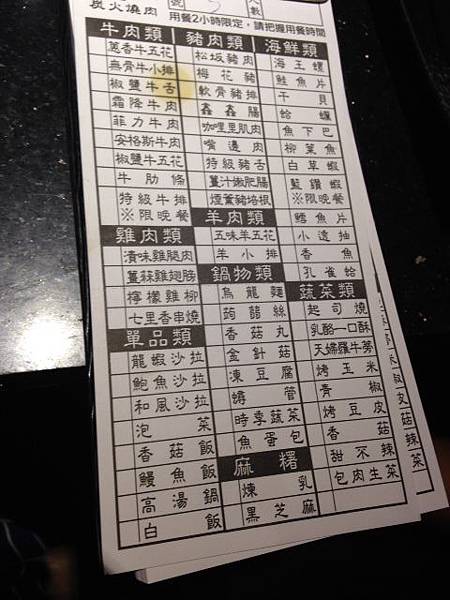 炭火燒肉 號 人數
用餐2小時限定，請把握用餐時間
牛肉類 豬肉類 海鮮類
蔥香牛五花 松坂豬肉 海王螺
無骨牛小排 梅花豬 鮭魚片
椒鹽牛舌 軟骨豬排 干貝
霜降牛肉 鑫鑫腸 蛤蠣
菲力牛肉 咖哩里肌肉 魚下巴
安格斯牛肉 嘴邊肉 柳葉魚
椒鹽牛五花 特級豬舌 白草蝦
牛肋條 薑汁嫩肥腸 藍鑽蝦
特級牛排 煙薰豬培根 ※限晚餐
※限晚餐 羊肉類 鱈魚片
雞肉類 五味羊五花 小透抽
漬味雞腿肉 羊小排 香魚
薑蒜雞翅膀 鍋物類 孔雀蛤
檸檬雞柳 烏龍麵 蔬菜類
七里香串燒 蒟蒻絲 起司燒
單品類 香菇丸 乳酪一口酥
龍蝦沙拉 金針菇 天婦羅牛蒡
鮑魚沙拉 凍豆腐 烤玉米
和風沙拉 蟳管 青椒
泡菜 時季蔬菜 烤豆皮
香菇飯 魚蛋包 香菇
鰻魚飯 麻糬 甜不辣
高湯鍋 煉乳 包肉生菜
白飯 黑芝麻